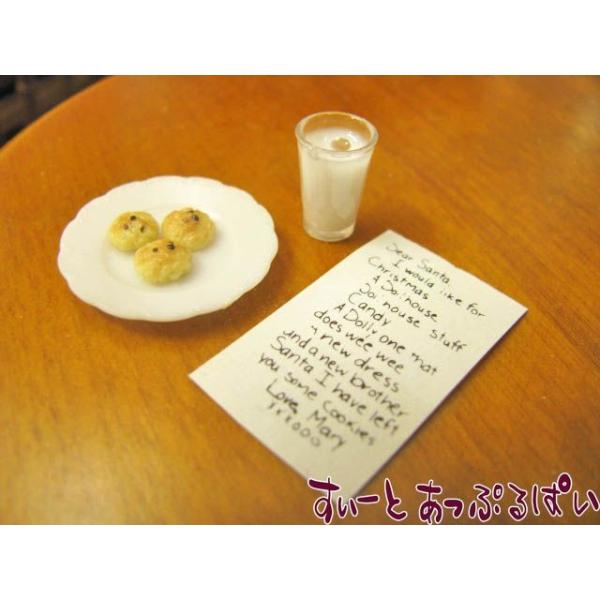 Dear Santa
I would like for
Christmas
A Doll house
Doll house stuff
Candy
A Dolly one that
does wee wee
a new dress
and a new brother
Santa I have left
you some Cookies
Love, Mary
xxxooo
すぃーとあっぷるぱい